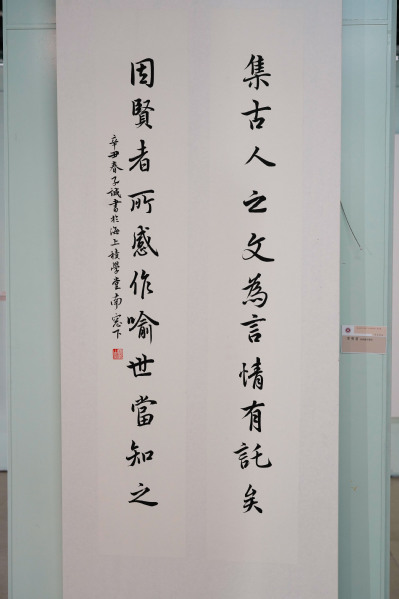 集古人之文為言情有託矣
因賢者所感作喻世當知之
辛丑春子誠書於海上積學堂南窗下